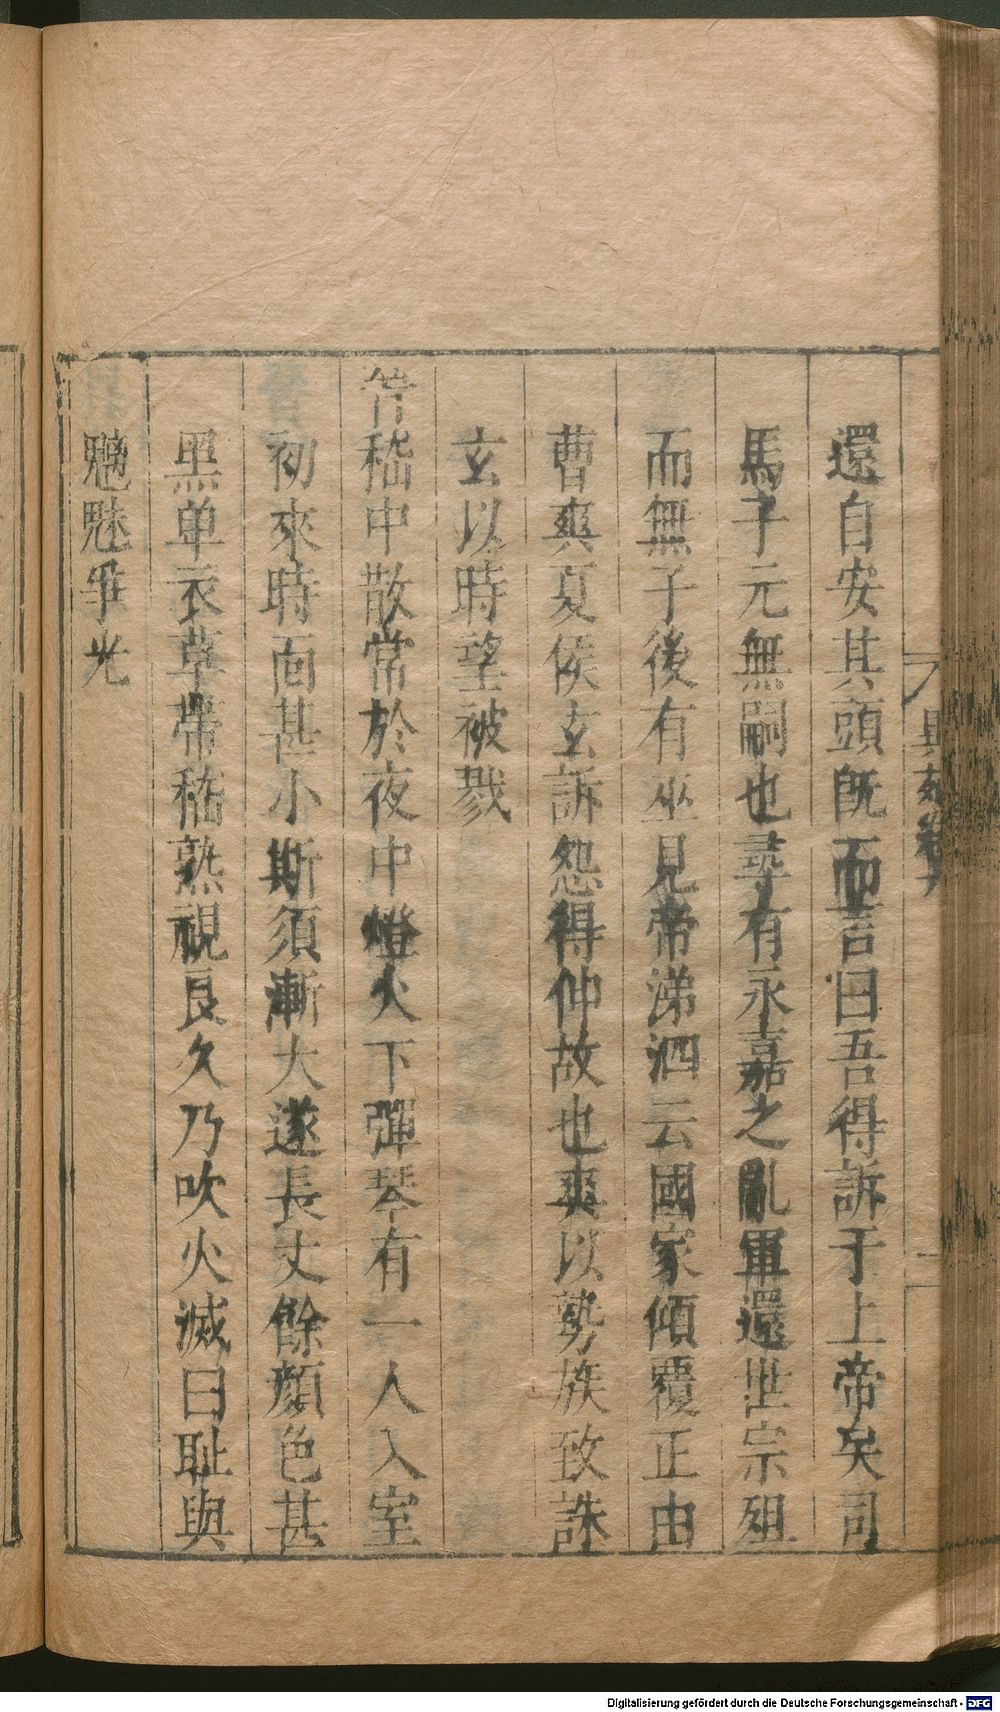 還自安其頭旣而言曰吾得訴于上帝矣司
馬子元無嗣也尋有永嘉之亂軍還世宗殂
而無子後有巫見帝涕泗云國家傾覆正由
曹爽夏侯玄訴怨得伸故也爽以勢族致誅
玄以時望被戮
嵇中散常於夜中燈火下彈琴有一人入室
初來時面甚小斯須漸大遂長丈餘顏色甚
黑单衣草帶嵇熟視良久乃吹火滅曰耻與
魑魅爭光
Digitalisierung gefördert durch die Deutsche Forschungsgemeinschaft - DFG